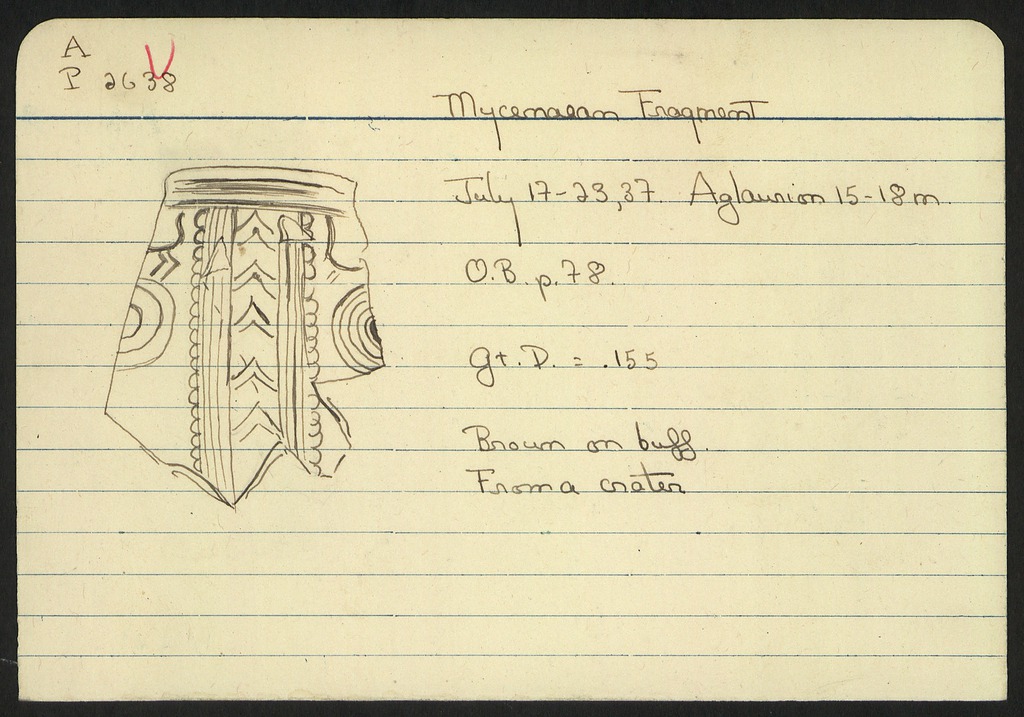 A
P 2638
Mycenaean Fragment
July 17-23, 37. Aglaurion 15-18 m.
O.B. p. 78.
gt. D. = .155
Brown on buff.
From a crater